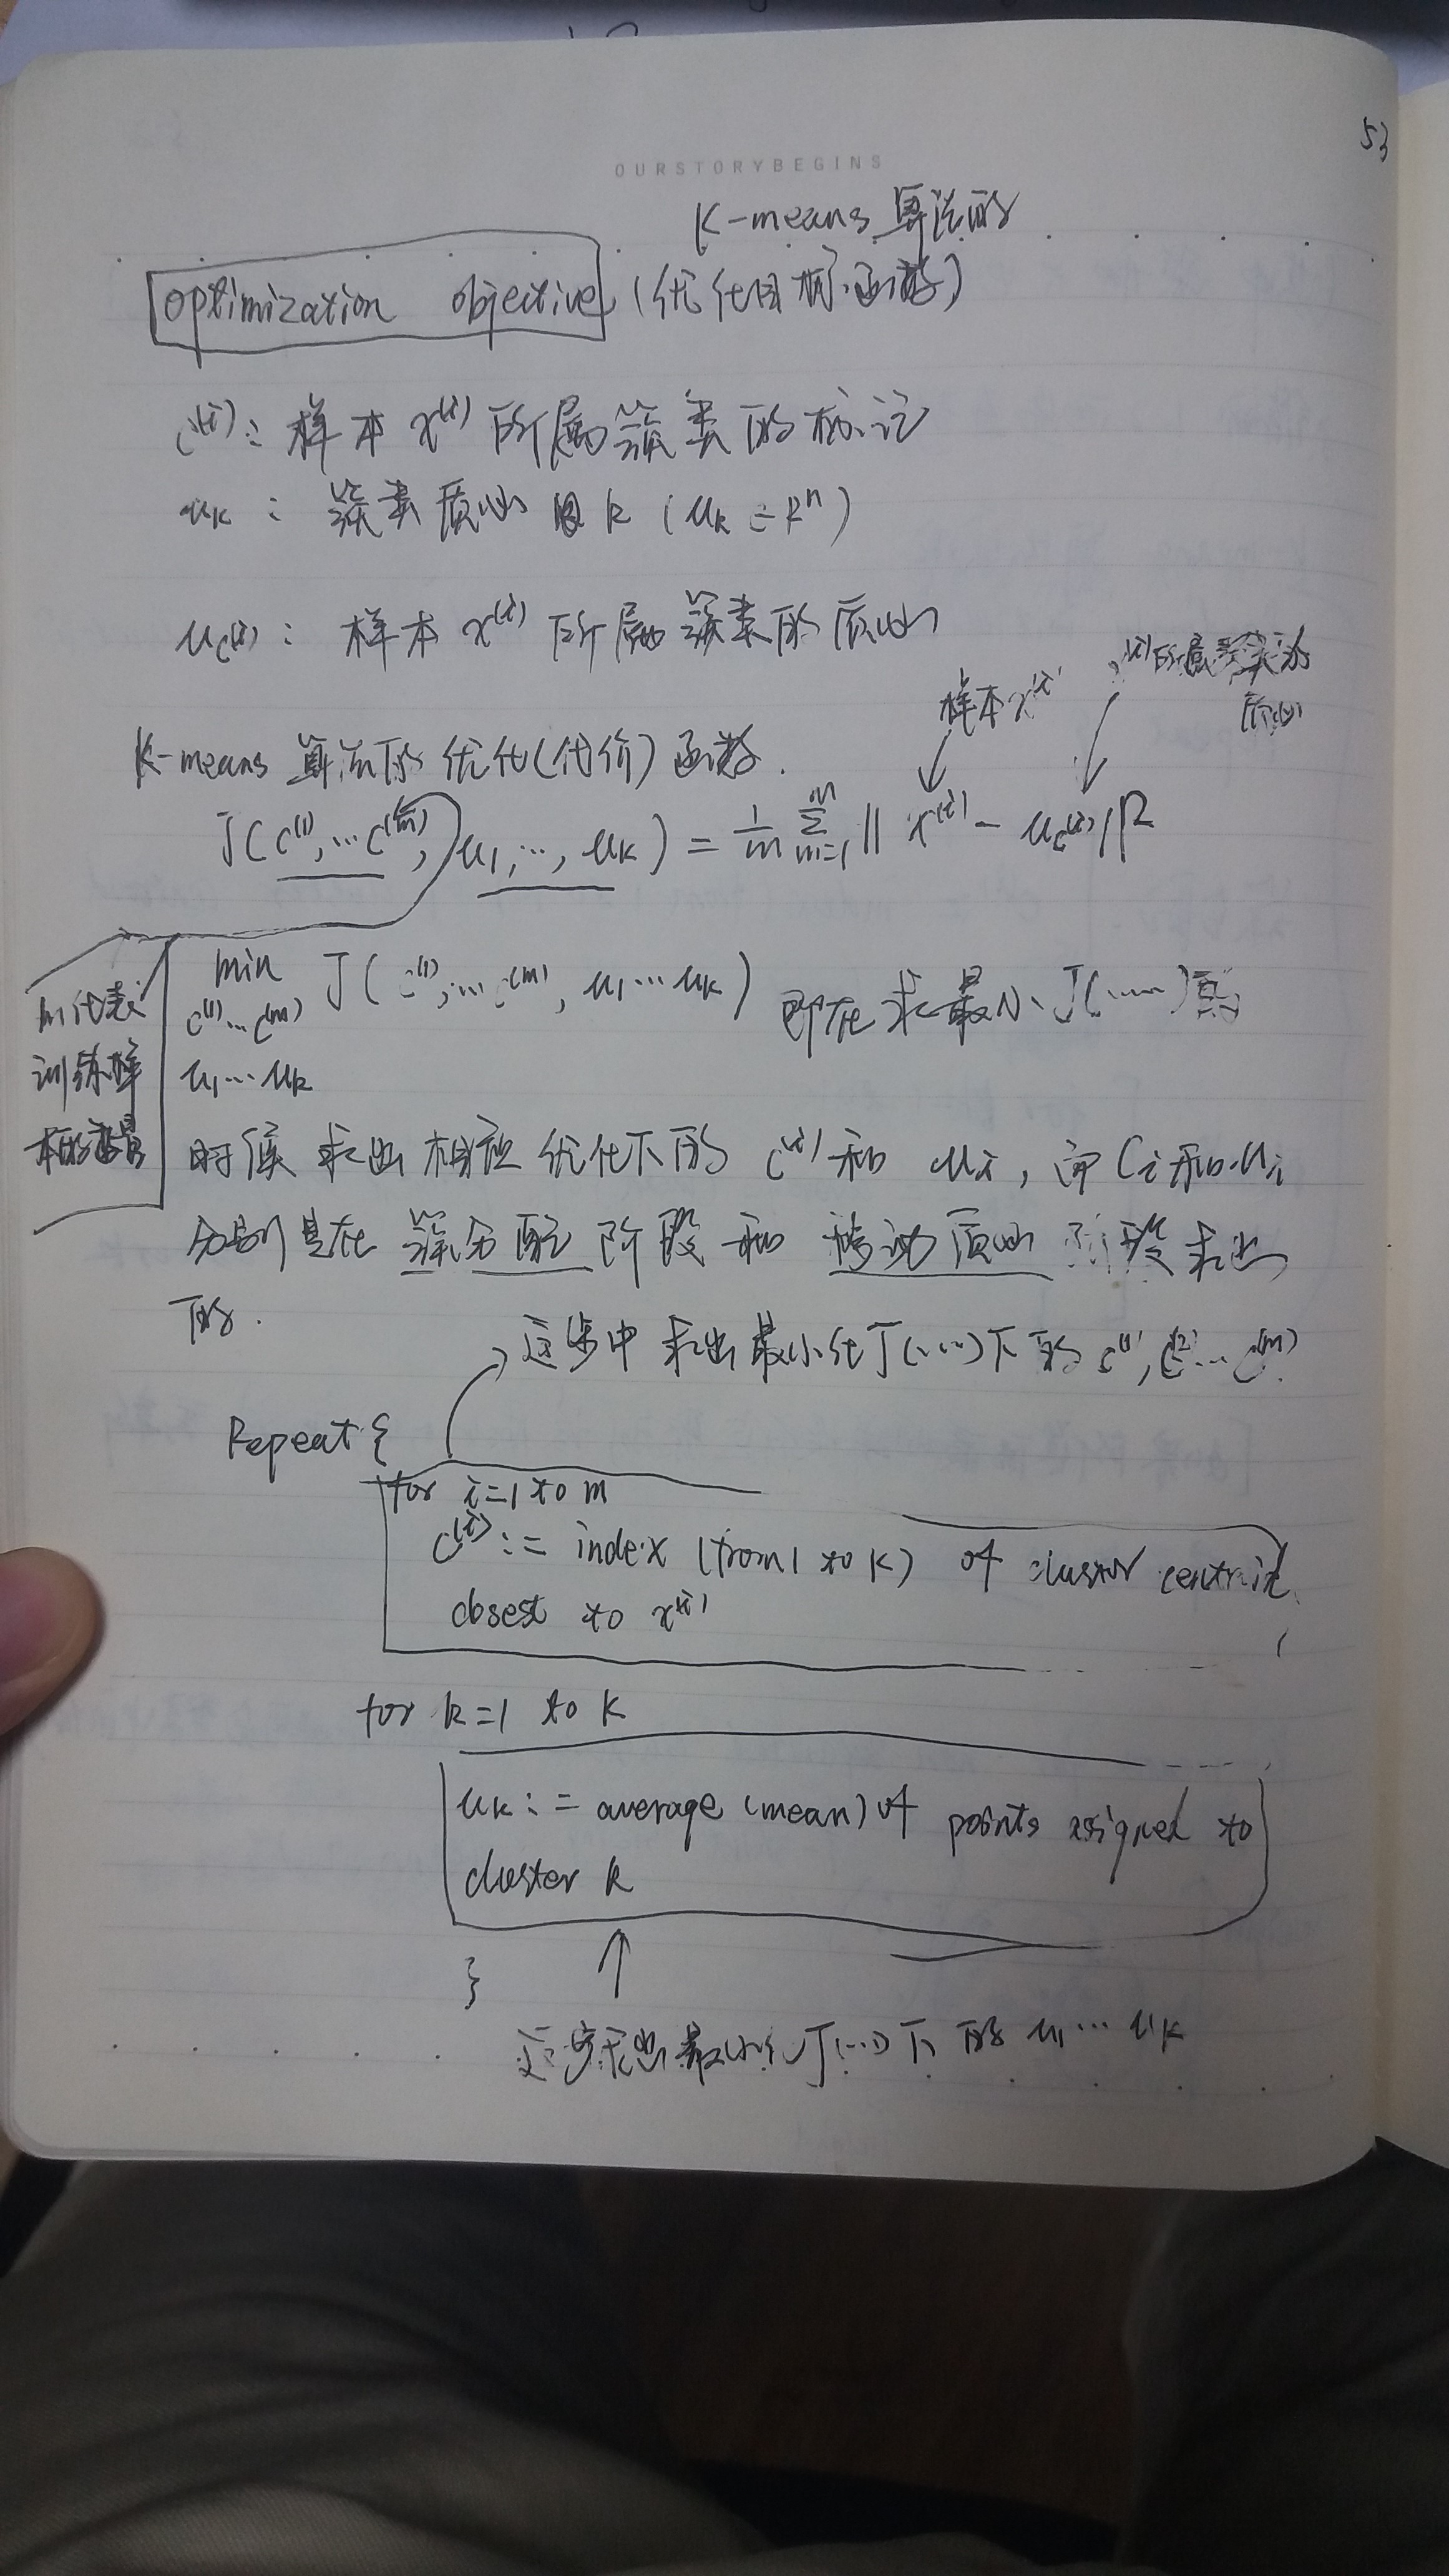 53
OURSTORYBEGINS
K-means 算法的
optimization objective (优化目标函数)
c⁽ⁱ⁾: 样本 x⁽ⁱ⁾ 所属簇类的标记
μk : 簇类质心 k (μk = Rⁿ)
μc⁽ⁱ⁾ : 样本 x⁽ⁱ⁾ 所属簇类的质心
样本 x⁽ⁱ⁾
x⁽ⁱ⁾所属簇类的
质心
K-means 算法的优化(代价)函数.
J(c⁽¹⁾,…c⁽ᵐ⁾, μ1,…, μk) = 1/m Σ m=1 m || x⁽ⁱ⁾ - μc⁽ⁱ⁾ ||²
m代表
训练样
本的数量
min J( c⁽¹⁾,…c⁽ᵐ⁾, μ1…μk) 即在求最小J(……)的
c⁽¹⁾…c⁽ᵐ⁾
μ1…μk
时候求出相应优化下的 c⁽ⁱ⁾和 μi, 而Ci和μi
分别是在簇分配阶段和移动质心阶段求出
的.
这步中求出最小化J(……)下的 c⁽¹⁾, c⁽²⁾…c⁽ᵐ⁾
Repeat {
for i=1 to m
c⁽ⁱ⁾ := index (from 1 to K) of cluster centroid
closest to x⁽ⁱ⁾
for k=1 to K
μk := average (mean) of points assigned to
cluster k
}
这步求出最小化J(…)下的 μ1…μk